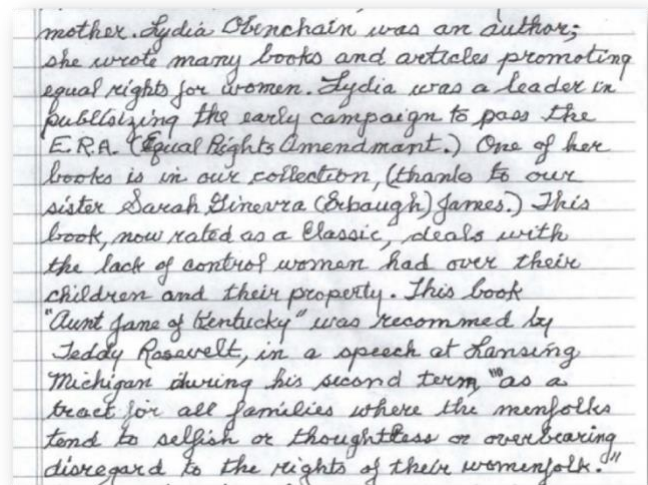 mother. Lydia Obenchain was an author;
she wrote many books and articles promoting
equal rights for women. Lydia was a leader in
publisizing the early campaign to pass the
E.R.A. (Equal Rights Amendmant.) One of her
books is in our collection, (thanks to our
sister Sarah Ginevra (Erbaugh) James.) This
book, now rated as a Classic, deals with
the lack of control women had over their
children and their property. This book
"Aunt Jane of Kentucky" was recommed by
Teddy Rosevelt, in a speech at Lansing
Michigan during his second term, "as a
tract for all families where the menfolks
tend to selfish or thoughtless or overbearing
disregard to the rights of their womenfolk."